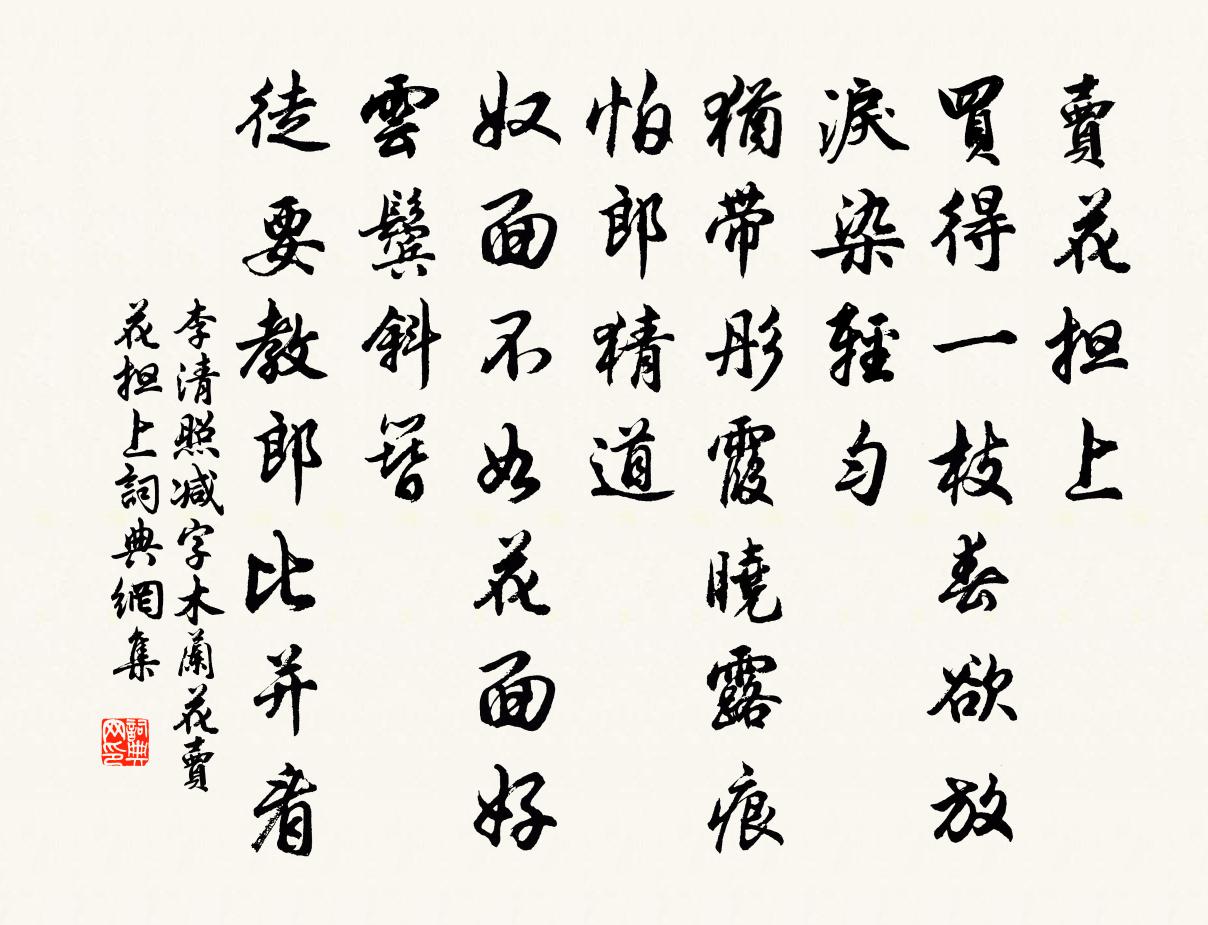 賣花担上
買得一枝春欲放
淚染輕勻
猶帶彤霞曉露痕
怕郎猜道
奴面不如花面好
雲鬢斜簪
徒要教郎比并看
李清照减字木蘭花賣
花担上詞典網集
詞典
网印